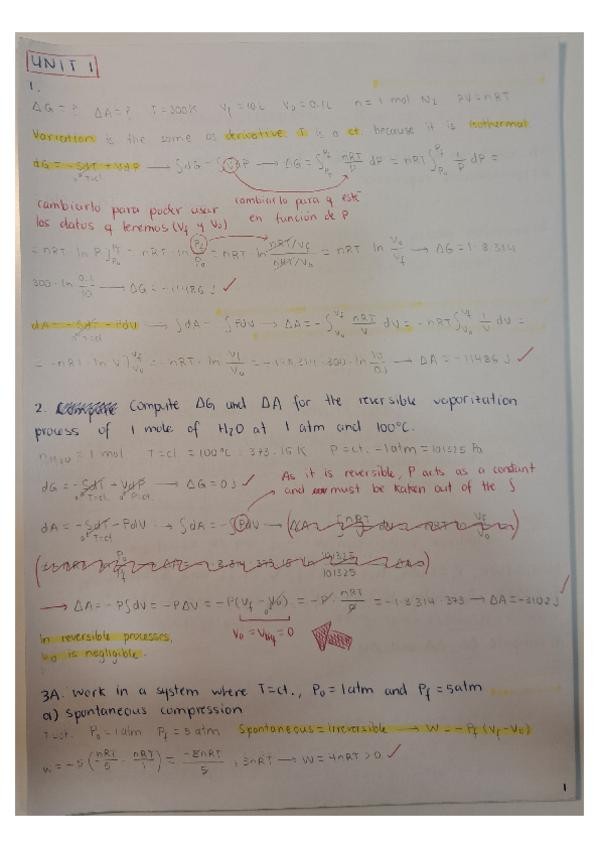 UNIT 1
1.
ΔG = ? ΔA = ? T = 300K Vf = 10L V0 = 0.1L n = 1 mol N2 PV = nRT
Variation is the same as derivative T is a ct. because it is isothermal
dG = -SdT + VdP → ∫dG = ∫VdP → ΔG = ∫P0Pf nRT/P dP = nRT ∫P0Pf 1/P dP =
T=ct
cambiarlo para poder usar cambiarlo para q esté
los datos q tenemos (Vf y V0) en función de P
= nRT ln P]P0Pf = nRT · ln Pf/P0 = nRT ln nRT/Vf / nRT/V0 = nRT ln V0/Vf → ΔG = 1 · 8.314
300 · ln 0.1/10 → ΔG = -11486 J ✓
dA = -SdT - PdV → ∫dA = -∫PdV → ΔA = -∫V0Vf nRT/V dV = -nRT ∫V0Vf 1/V dV =
T=ct
= -nRT · ln V]V0Vf = -nRT · ln Vf/V0 = -1 · 8.314 · 300 · ln 10/0.1 → ΔA = -11486 J ✓
2. Compute ΔG and ΔA for the reversible vaporization
process of 1 mole of H2O at 1 atm and 100°C.
nH2O = 1 mol T = ct = 100°C = 373.15K P = ct. = 1atm = 101325 Pa
As it is reversible, P acts as a constant
dG = -SdT + VdP → ΔG = 0 J ✓ and must be taken out of the ∫
T=ct P=ct.
dA = -SdT - PdV → ∫dA = -∫PdV →
T=ct
→ ΔA = -P∫dV = -PΔV = -P(Vf - V0) = -P · nRT/P = -1 · 8.314 · 373 → ΔA = -3102 J ✓
In reversible processes, V0 = Vliq = 0
V0 is negligible.
3A. Work in a system where T = ct., P0 = 1atm and Pf = 5atm
a) Spontaneous compression
T = ct. P0 = 1 atm Pf = 5 atm Spontaneous = irreversible → W = -Pf (Vf - V0)
W = -5 (nRT/5 - nRT/1) = nRT → W = 4nRT > 0 ✓
1